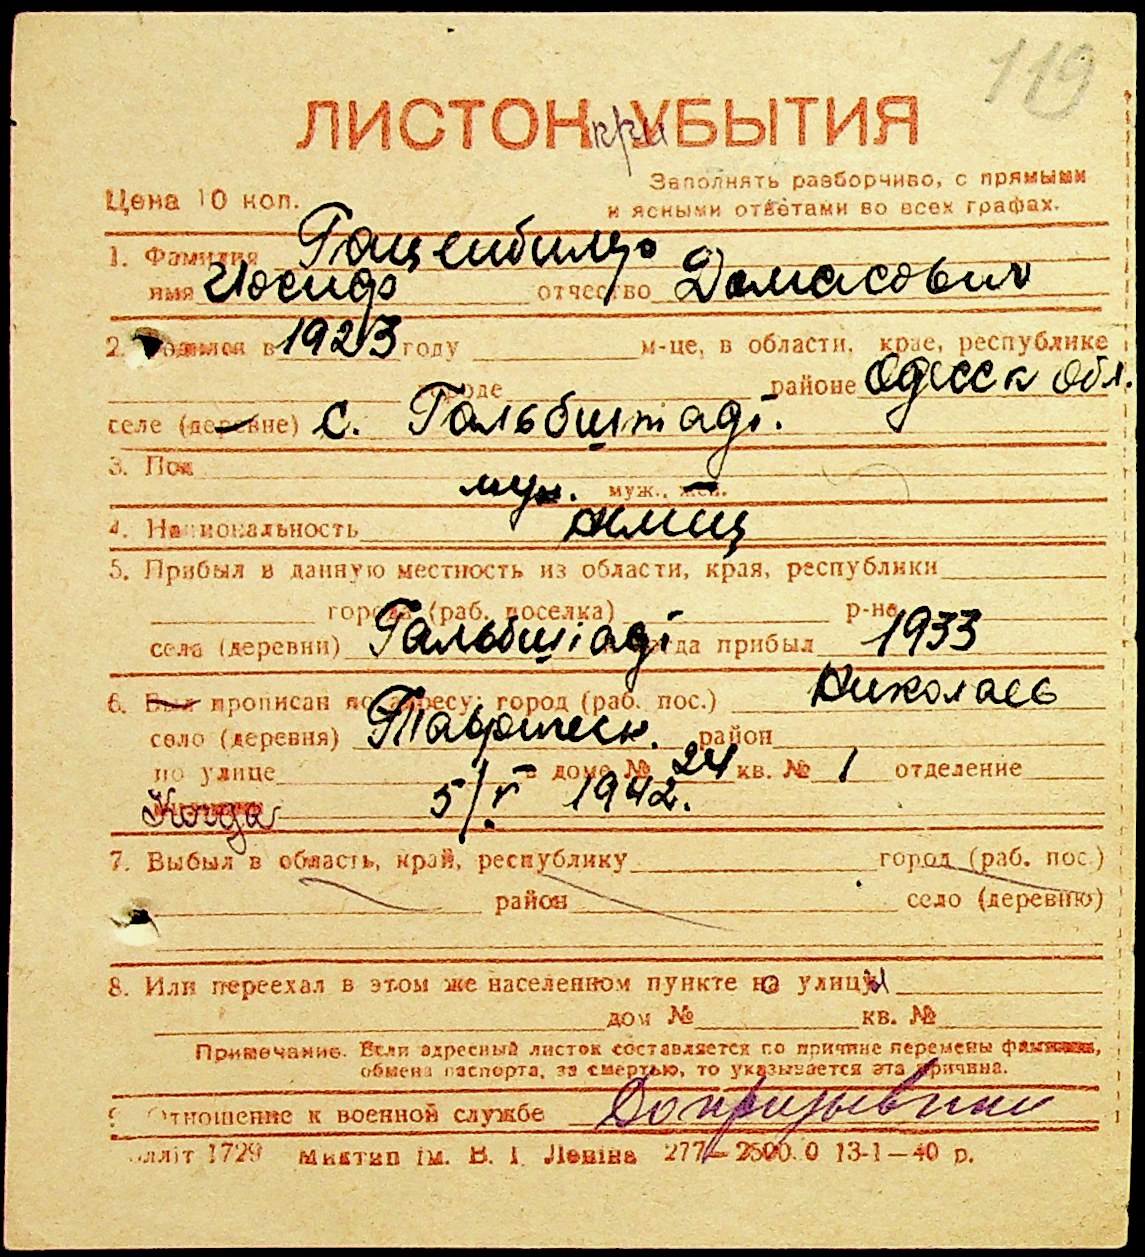 119
ЛИСТОК при УБЫТИЯ
Заполнять разборчиво, с прямыми
Цена 10 коп.
и ясными ответами во всех графах.
1. Фамилия Гаценбилер
имя Иосиф отчество Домасович
2. Родился в 1923 году м-це, в области, крае, республике
городе районе Одесск обл.
селе (деревне) с. Гальбштадт.
3. Пол
муж. муж., жен.
4. Национальность немец
5. Прибыл в данную местность из области, края, республики
города (раб. поселка) р-на
села (деревни) Гальбштадт когда прибыл 1933
6. Был прописан по адресу: город (раб. пос.) Николаев
село (деревня) Таврическ. район
по улице в доме № 24 кв. № 1 отделение
Когда 5/V 1942.
7. Выбыл в область, край, республику город (раб. пос.)
район село (деревню)
8. Или переехал в этом же населенном пункте на улицу
дом № кв. №
Примечание. Если адресный листок составляется по причине перемены фамилии,
обмена паспорта, за смертью, то указывается эта причина.
9. Отношение к военной службе Допризывник
лліт 1729 Миктип ім. В. І. Леніна 277—2500.0 13-1—40 р.